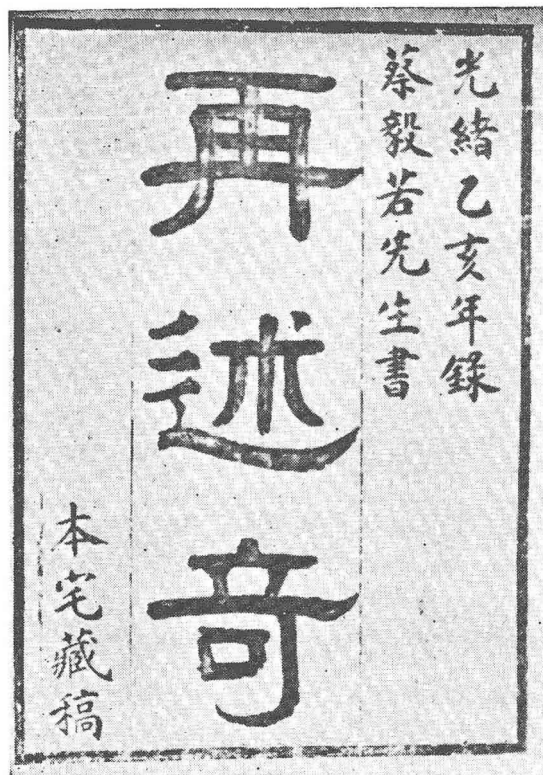 光緒乙亥年錄
蔡毅若先生書
再述竒
本宅藏稿